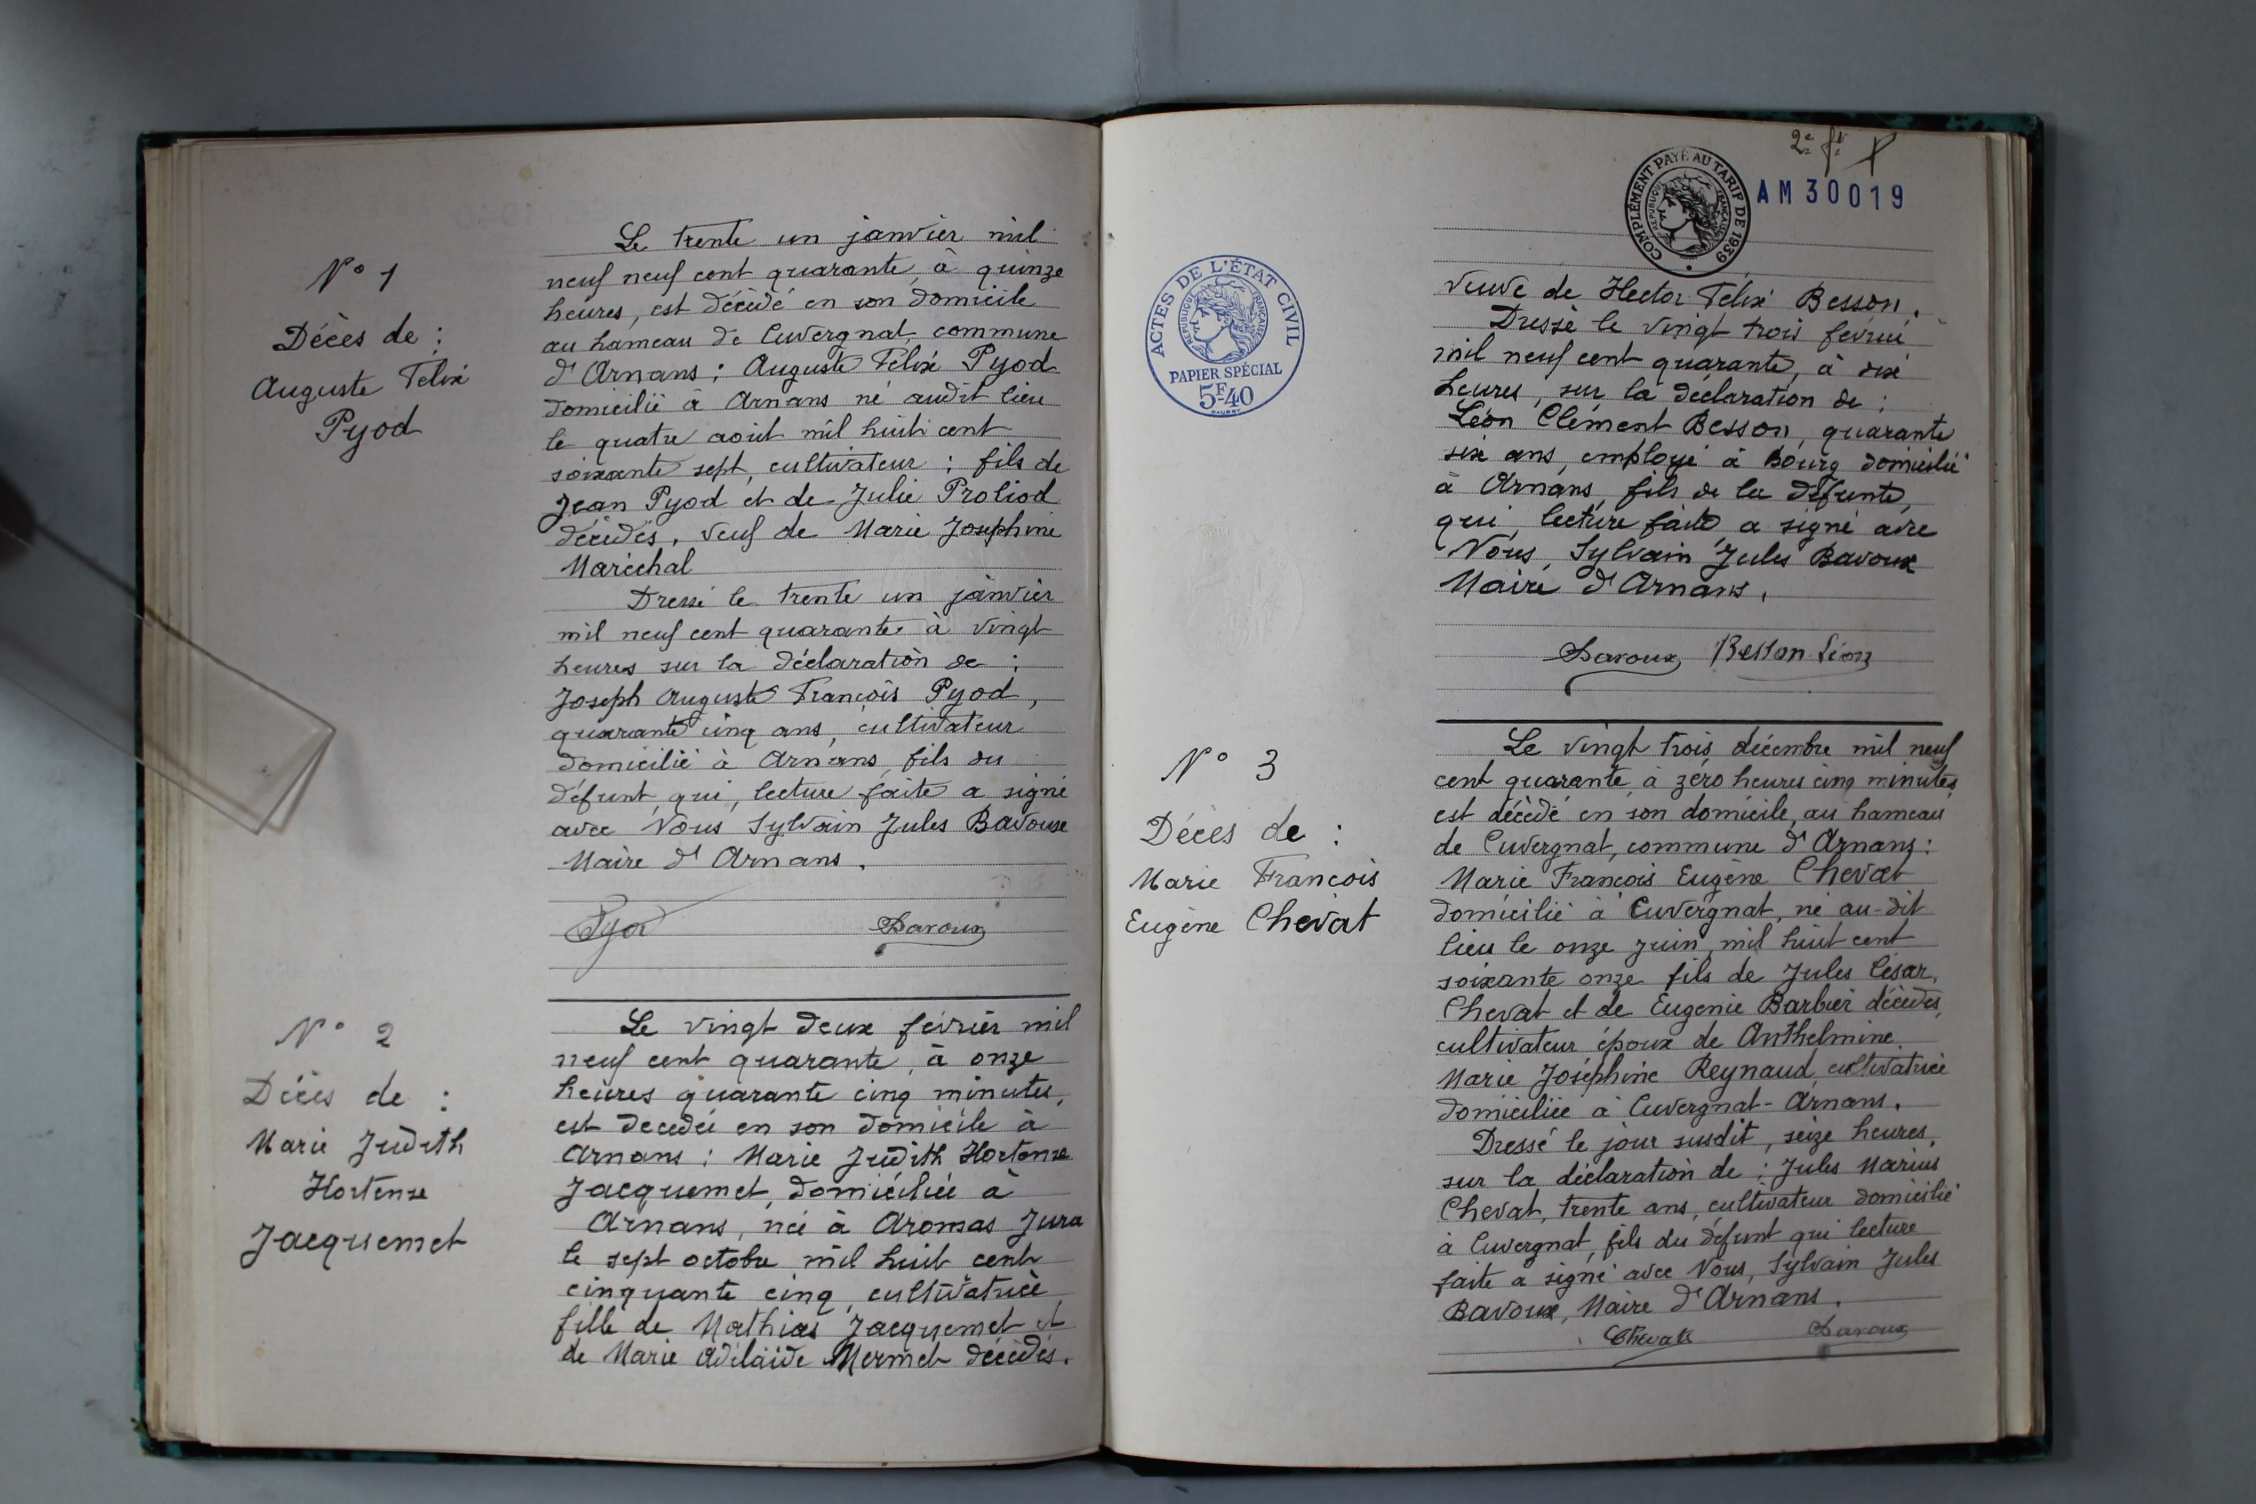 N° 1
Décès de :
Auguste Felix
Pyod
Le trente un janvier mil
neuf neuf cent quarante, à quinze
heures, est décédé en son domicile
au hameau de Cuvergnat, commune
d'Arnans ; Auguste Felix Pyod
domicilié à Arnans né audit lieu
le quatre août mil huit cent
soixante sept, cultivateur ; fils de
Jean Pyod et de Julie Proliod
décédés, veuf de Marie Josephine
Maréchal
Dressé le trente un janvier
mil neuf cent quarante à vingt
heures sur la déclaration de :
Joseph Auguste François Pyod,
quarante cinq ans, cultivateur
domicilié à Arnans, fils du
défunt, qui, lecture faite a signé
avec Nous Sylvain Jules Bavoux
Maire d'Arnans.
Pyod Bavoux
N° 2
Décès de :
Marie Judith
Hortense
Jacquemet
Le vingt deux février mil
neuf cent quarante, à onze
heures quarante cinq minutes,
est décédée en son domicile à
Arnans : Marie Judith Hortense
Jacquemet, domiciliée à
Arnans, née à Aromas Jura
le sept octobre mil huit cent
cinquante cinq, cultivatrice,
fille de Mathias Jacquemet et
de Marie Adélaïde Mermet décédés.
2e ft
COMPLÉMENT PAYÉ AU TARIF DE 1939
RÉPUBLIQUE FRANÇAISE
AM30019
ACTES DE L'ÉTAT CIVIL
RÉPUBLIQUE FRANÇAISE
PAPIER SPÉCIAL
5F40
veuve de Hector Félix Besson.
Dressé le vingt trois février
mil neuf cent quarante, à dix
heures, sur la déclaration de :
Léon Clément Besson, quarante
six ans, employé à Bourg domicilié
à Arnans, fils de la défunte,
qui, lecture faite, a signé avec
Nous, Sylvain Jules Bavoux
Maire d'Arnans.
Bavoux Besson Léon
N° 3
Décès de :
Marie François
Eugène Chevat
Le vingt trois décembre mil neuf
cent quarante, à zéro heures cinq minutes
est décédé en son domicile, au hameau
de Cuvergnat, commune d'Arnans :
Marie François Eugène Chevat
domicilié à Cuvergnat, né au-dit
lieu le onze juin mil huit cent
soixante onze fils de Jules César
Chevat et de Eugenie Barbier décédés,
cultivateur époux de Anthelmine
Marie Joséphine Reynaud, cultivatrice
domiciliée à Cuvergnat-Arnans.
Dressé le jour susdit, seize heures,
sur la déclaration de : Jules Marius
Chevat, trente ans, cultivateur domicilié
à Cuvergnat, fils du défunt qui lecture
faite a signé avec Nous, Sylvain Jules
Bavoux, Maire d'Arnans.
Chevat Bavoux